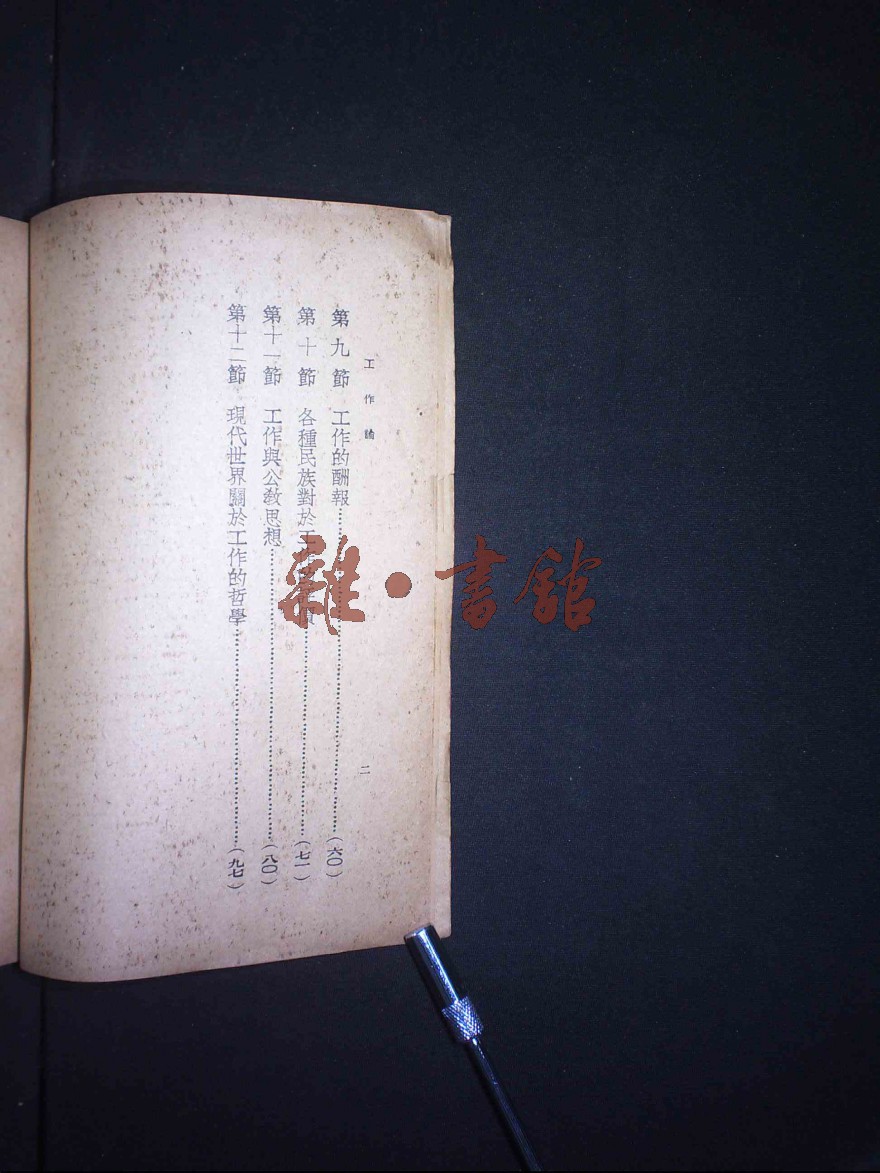 工作論
第九節 工作的酬報……(六〇)
第十節 各種民族對於工……(七一)
第十一節 工作與公教思想……(八〇)
第十二節 現代世界關於工作的哲學……(九七)
二
雜·書館